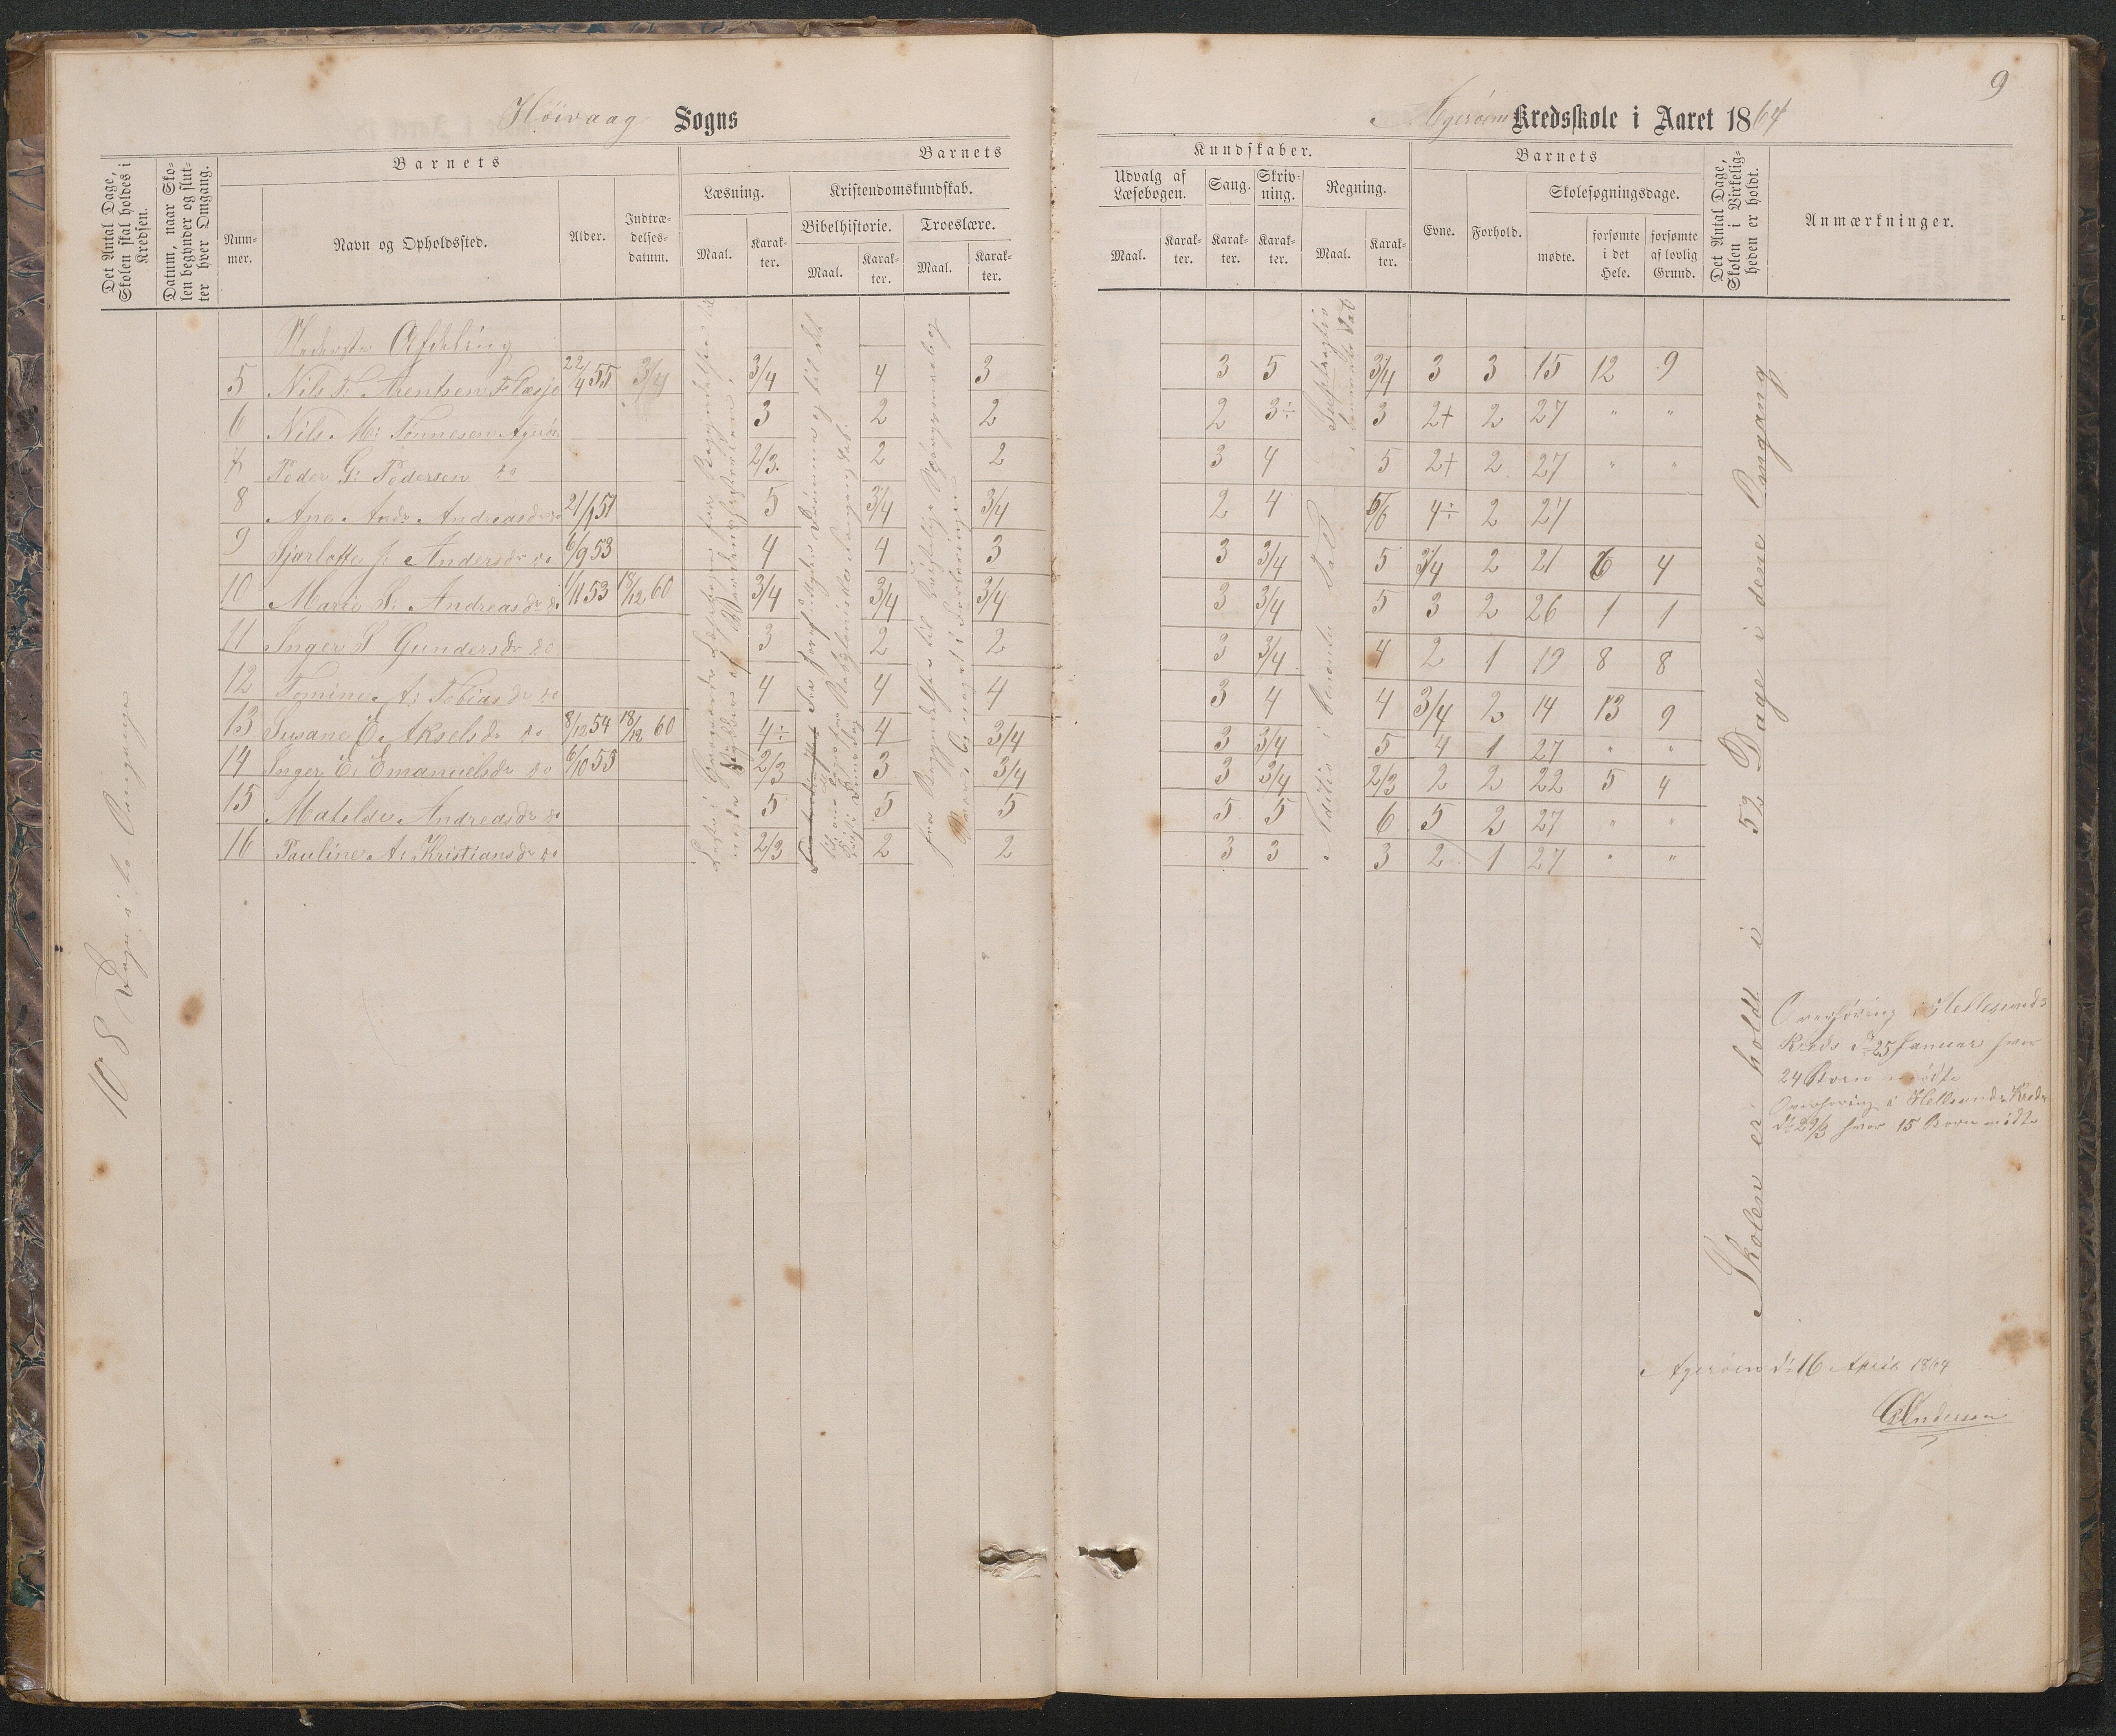 9
Höivaag Sogns
Agerøens Kredsskole i Aaret 1864
Det Antal Dage, Skolen skal holdes i Kredsen.
Datum, naar Skolen begynder og slutter hver Omgang.
Barnets
Nummer.
Navn og Opholdssted.
Alder.
Indtrædelsesdatum.
Barnets
Læsning.
Maal.
Karakter.
Kristendomskundskab.
Bibelhistorie.
Maal.
Karakter.
Troeslære.
Maal.
Karakter.
Kundskaber.
Udvalg af Læsebogen.
Maal.
Karakter.
Sang.
Karakter.
Skrivning.
Karakter.
Regning.
Maal.
Karakter.
Barnets
Evne.
Forhold.
Skolesøgningsdage.
mødte.
forsømte i det Hele.
forsømte af lovlig Grund.
Det Antal Dage, Skolen i Virkeligheden er holdt.
Anmærkninger.
Nederste Afdeling
5 Nils T: Arentsen Flæsjø 22/4 55 3/4 3/4 4 3 3 5 3/4 3 3 15 12 9
6 Nils M: Tønnesen Agerøe 3 2 2 2 3÷ 3 2+ 2 27 " "
7 Peder G: Pedersen do 2/3. 2 2 3 4 5 2+ 2 27 " "
8 Ane Andreasdr do 5 3/4 3/4 2 4 5/6 4÷ 2 27
9 Sjarlotte J: Andersdr do 6/9 53 4 4 3 3 3/4 5 3/4 2 21 6 4
10 Marie S: Andreasdr do 1/11 53 18/12 60 3/4 3/4 3/4 3 3/4 5 3 2 26 1 1
11 Inger S Gundersdr do 3 2 2 3 3/4 4 2 1 19 8 8
12 Tomine A: Tobiasdr do 4 4 4 3 4 4 3/4 2 14 13 9
13 Susane E. Akselsdr do 8/12 54 18/12 60 4÷ 4 3/4 3 3/4 5 4 1 27 " "
14 Inger E: Emanuelsdr do 6/10 53 2/3 3 3/4 3 3/4 2/3 2 2 22 5 4
15 Matelde Andreasdr do 5 5 5 5 5 6 5 2 27 " "
16 Pauline A: Kristiansdr do 2/3 2 2 3 3 3 2 1 27 " "
108 Dage i to Omgange
Aditio i benevnte Tal
Skolen er holdt i 52 Dage i dene Omgang
Overhøring i Hellesunds
Kreds d. 25 Januar hvor
24 Børn mødte
Overhøring i Hellesunds Kreds
d: 29/3 hvor 15 Børn mødte
Agerøen d: 16 April 1864
Andersen